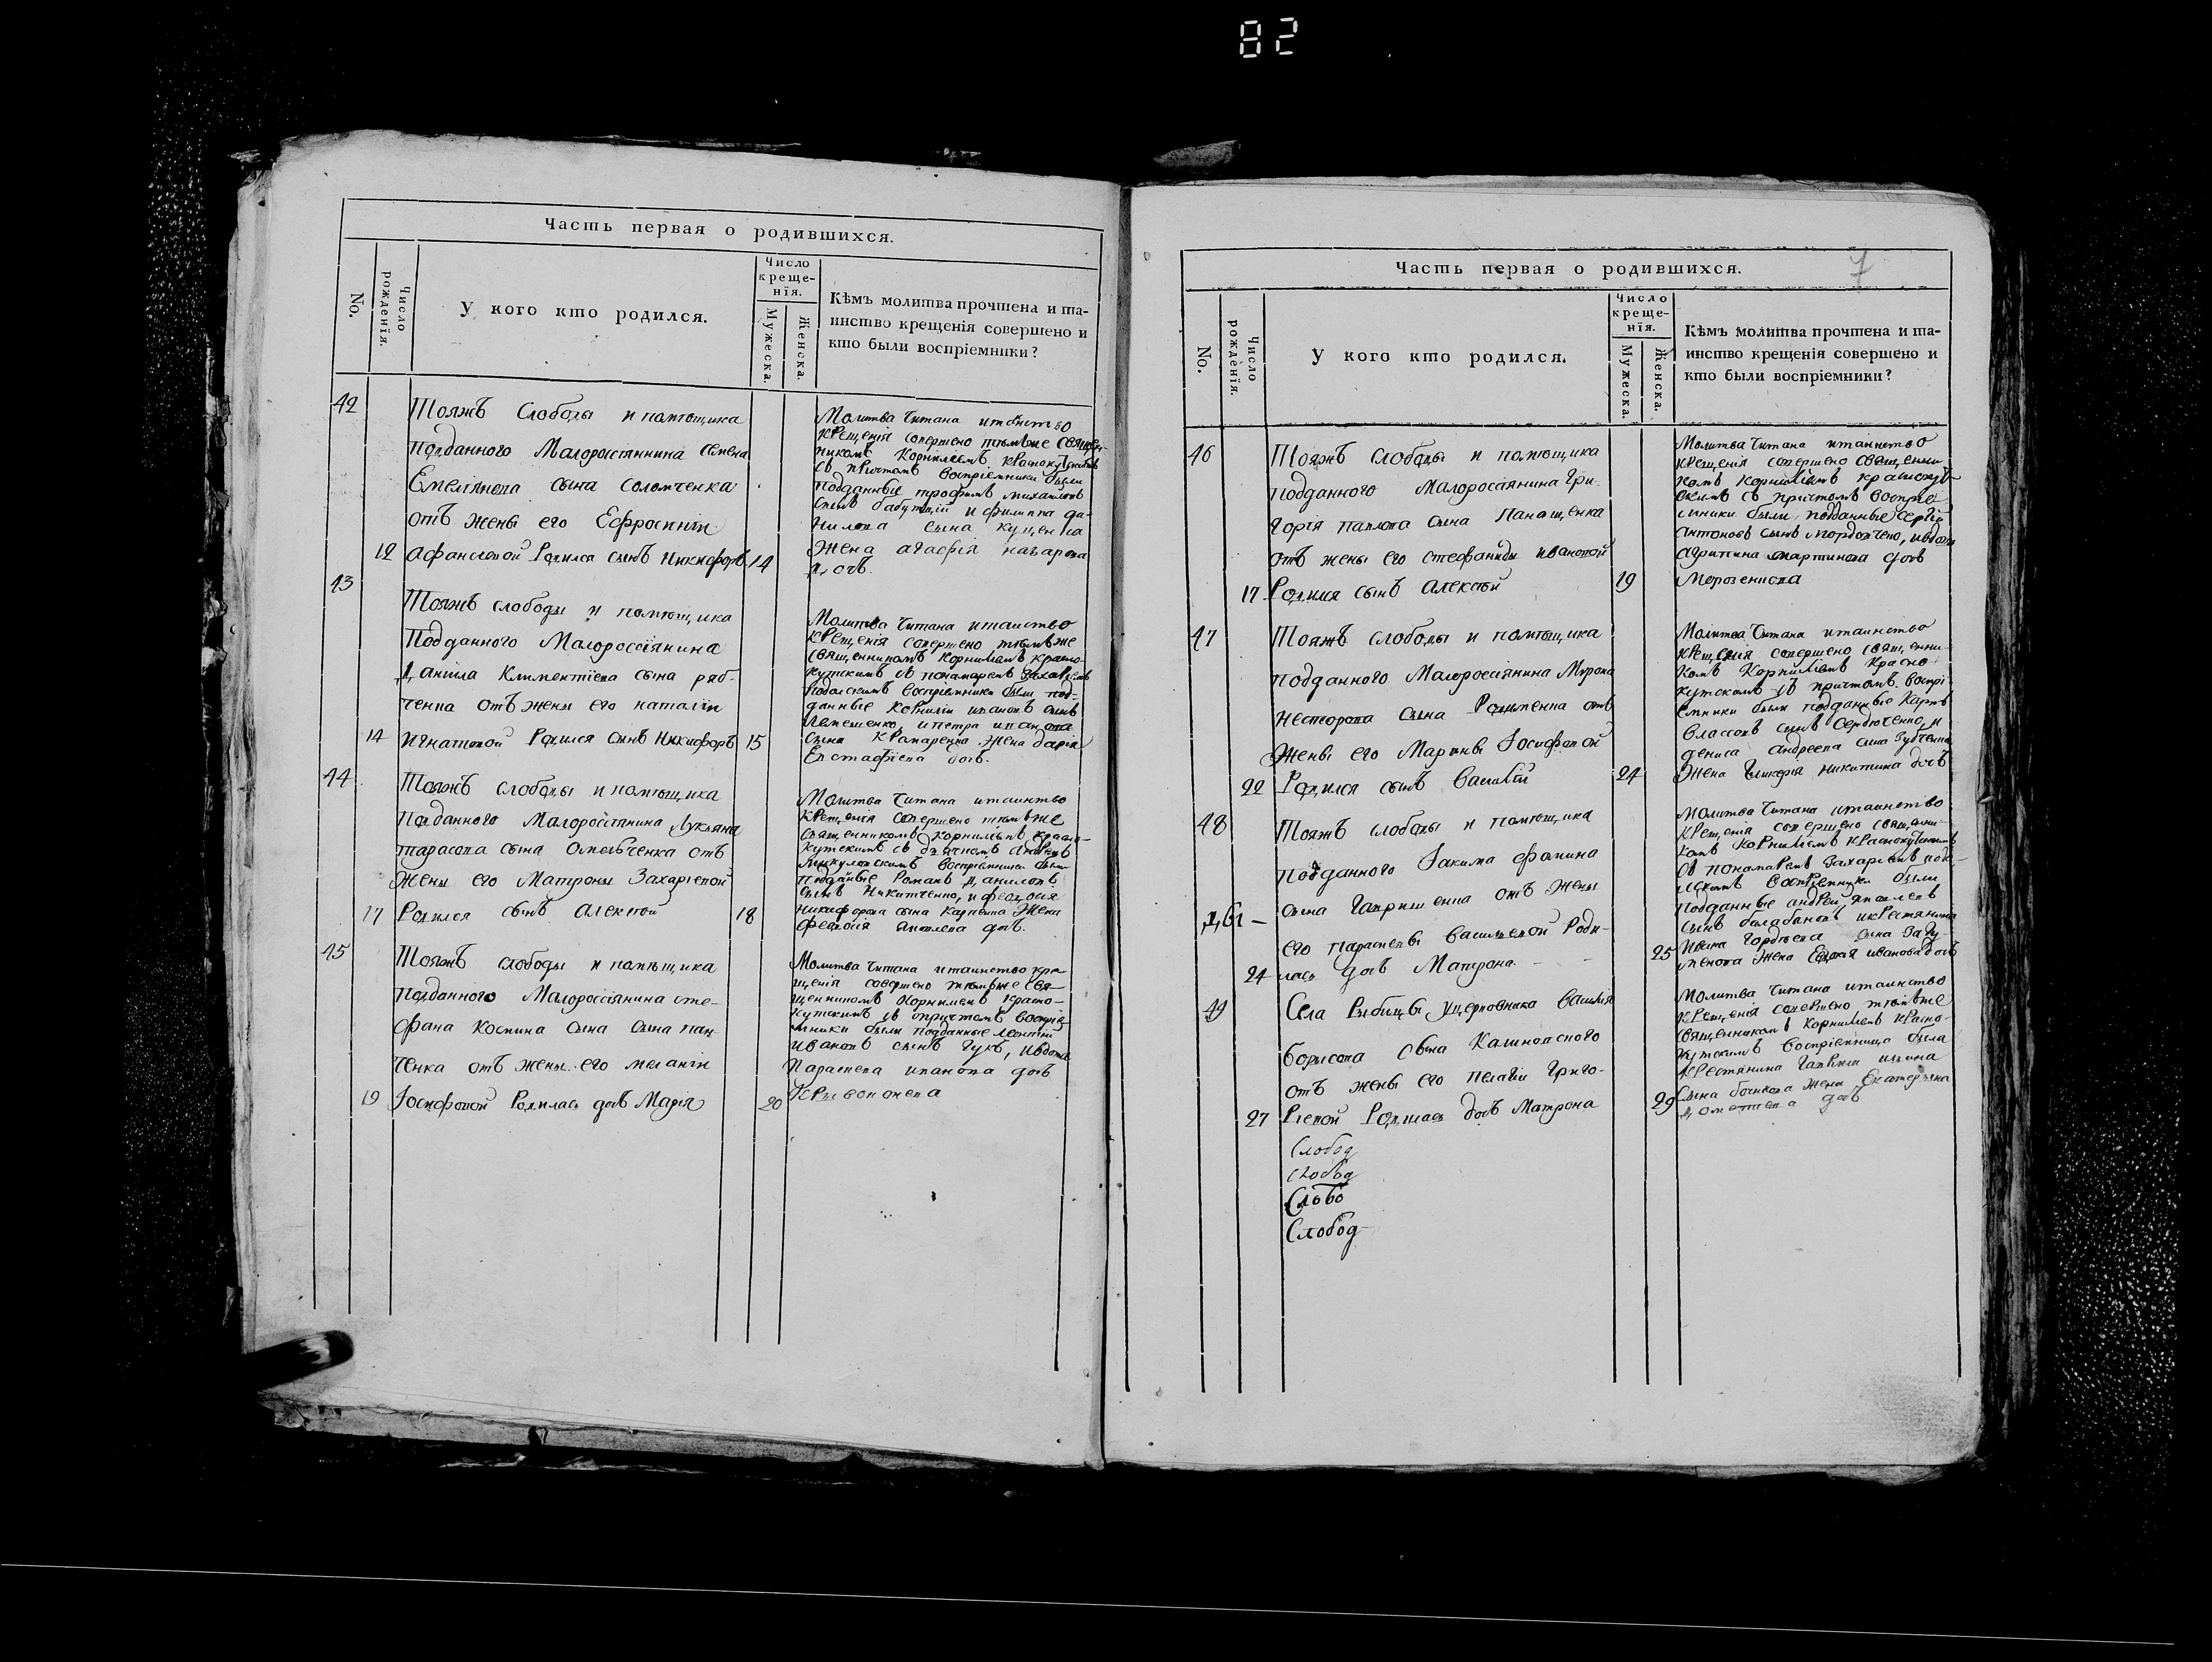 82
Часть первая о родившихся.
No.
Число рожденїя.
У кого кто родился.
Число креще-нїя.
Мужеска.
Женска.
Кѣмъ молитва прочтена и та-
инство крещенія совершено и
кто были воспріемники?
42
Тояжъ Слободы и помѣщика
подданного Малороссіянина Семена
Емеліянова сына Соломченка
отъ жены его Ефросиніи
12 Афанасиевой Родился сынъ Никифоръ 14
Молитва Читана итаинство
крещенія совершено тѣмъже Священ-
никомъ Корниліемъ Краснокутскимъ
съ причтомъ Воспріемники были
подданные трофимъ михаиловъ
сынъ и филиппа да-
нилова сына куценка
Жена агафія назарова
дочъ.
43
Тояжъ слободы и помѣщика
Подданного Малороссіянина
Даніила Климентіева сына ряб-
ченка отъ жены его наталіи
14 игнатовой Родился Сынъ Никифоръ 15
Молитва Читана итаинство
крещенія совершено тѣмъже
Священникомъ Корниліемъ красно-
кутскимъ съ понамаремъ Захаріемъ
подолскимъ воспріемники были под-
данные Корнилій ивановъ сынъ
Лемешенко, ипетра иванова
сына Крамаренка Жена дарія
Евстафіева дочъ.
44
Тояжъ слободы и помѣщика
Подданного Малороссіянина Лукьяна
тарасова сына Омельченка отъ
жены его Матроны Захаріевой
17 Родился сынъ Алексѣй 18
Молитва Читана итаинство
крещенія совершено тѣмъже
Священникомъ Корниліемъ красно-
кутскимъ съ дьячкомъ
Микулинскимъ Воспріемники были
подданные Романъ Даниловъ
сынъ Никитченко, и феодосія
Никифорова сына Карпенка Жена
феодосія Яковлева дочъ.
45
Тояжъ слободы и помѣщика
подданного Малороссіянина сте-
фана Космина Сына Сына пан-
ченка отъ жены его меланіи
19 Іосифовой Родилась дочъ Марія 20
Молитва Читана итаинство кре-
щенія совершено тѣмъже Свя-
щенникомъ Корниліемъ красно-
кутскимъ съ причтомъ воспріе-
мники были подданные леонтій
ивановъ сынъ Гукъ, ивдова
Параскева иванова дочъ
7
Часть первая о родившихся.
No.
Число рожденїя.
У кого кто родился.
Число креще-нїя.
Мужеска.
Женска.
Кѣмъ молитва прочтена и та-
инство крещенія совершено и
кто были воспріемники?
46
Тояжъ слободы и помѣщика
подданного Малороссіянина Гри-
горія павлова сына Панащенка
отъ жены его стефаниды ивановой
17 Родился сынъ Алексѣй 19
Молитва Читана итаинство
крещенія совершено священни-
комъ Корниліемъ краснокут-
скимъ съ причтомъ воспріе-
мники были подданные сергій
антоновъ сынъ ивдова
Агрипина мартинова дочъ
47
Тояжъ слободы и помѣщика
подданного Малороссіянина Мирона
несторова сына отъ
Жены его Марины Іосифовой
22 Родился сынъ Василій 24
Молитва Читана итаинство
крещенія совершено священни-
комъ Корниліемъ Красно-
кутскимъ съ причтомъ. воспрі-
емники были подданные Карпъ
Власовъ сынъ Сердюченко, и
дениса андреева сына Зубченка
Жена Гликерія никитина дочъ
48
Тояжъ слободы и помѣщика
подданного Іакима фомина
Двѣ – сына Гавришенка отъ Жены
его параскевы васильевой Роди-
24 лась дочъ Матрона. – – 25
Молитва Читана итаинство
крещенія совершено священни-
комъ Корниліемъ Краснокутскимъ
съ понамаремъ Захаріемъ подо-
лскимъ воспріемники были
подданные андрей яковлевъ
сынъ балабановъ икрестянина
Ивана Гордѣева сына
Жена иванова дочъ
49
Села Рыбицы уцерковника Василія
Борисова сына Калиновского
отъ жены его Пелагіи Григо-
27 Риевой Родилась дочъ Матрона 29
Молитва Читана итаинство
крещенія совершено тѣмъже
священникомъ Корниліемъ Красно-
кутскимъ воспріемница была
крестянина
сына Жена Екатерина
дочъ
Слобод
Слобод
Слобо
Слобод-